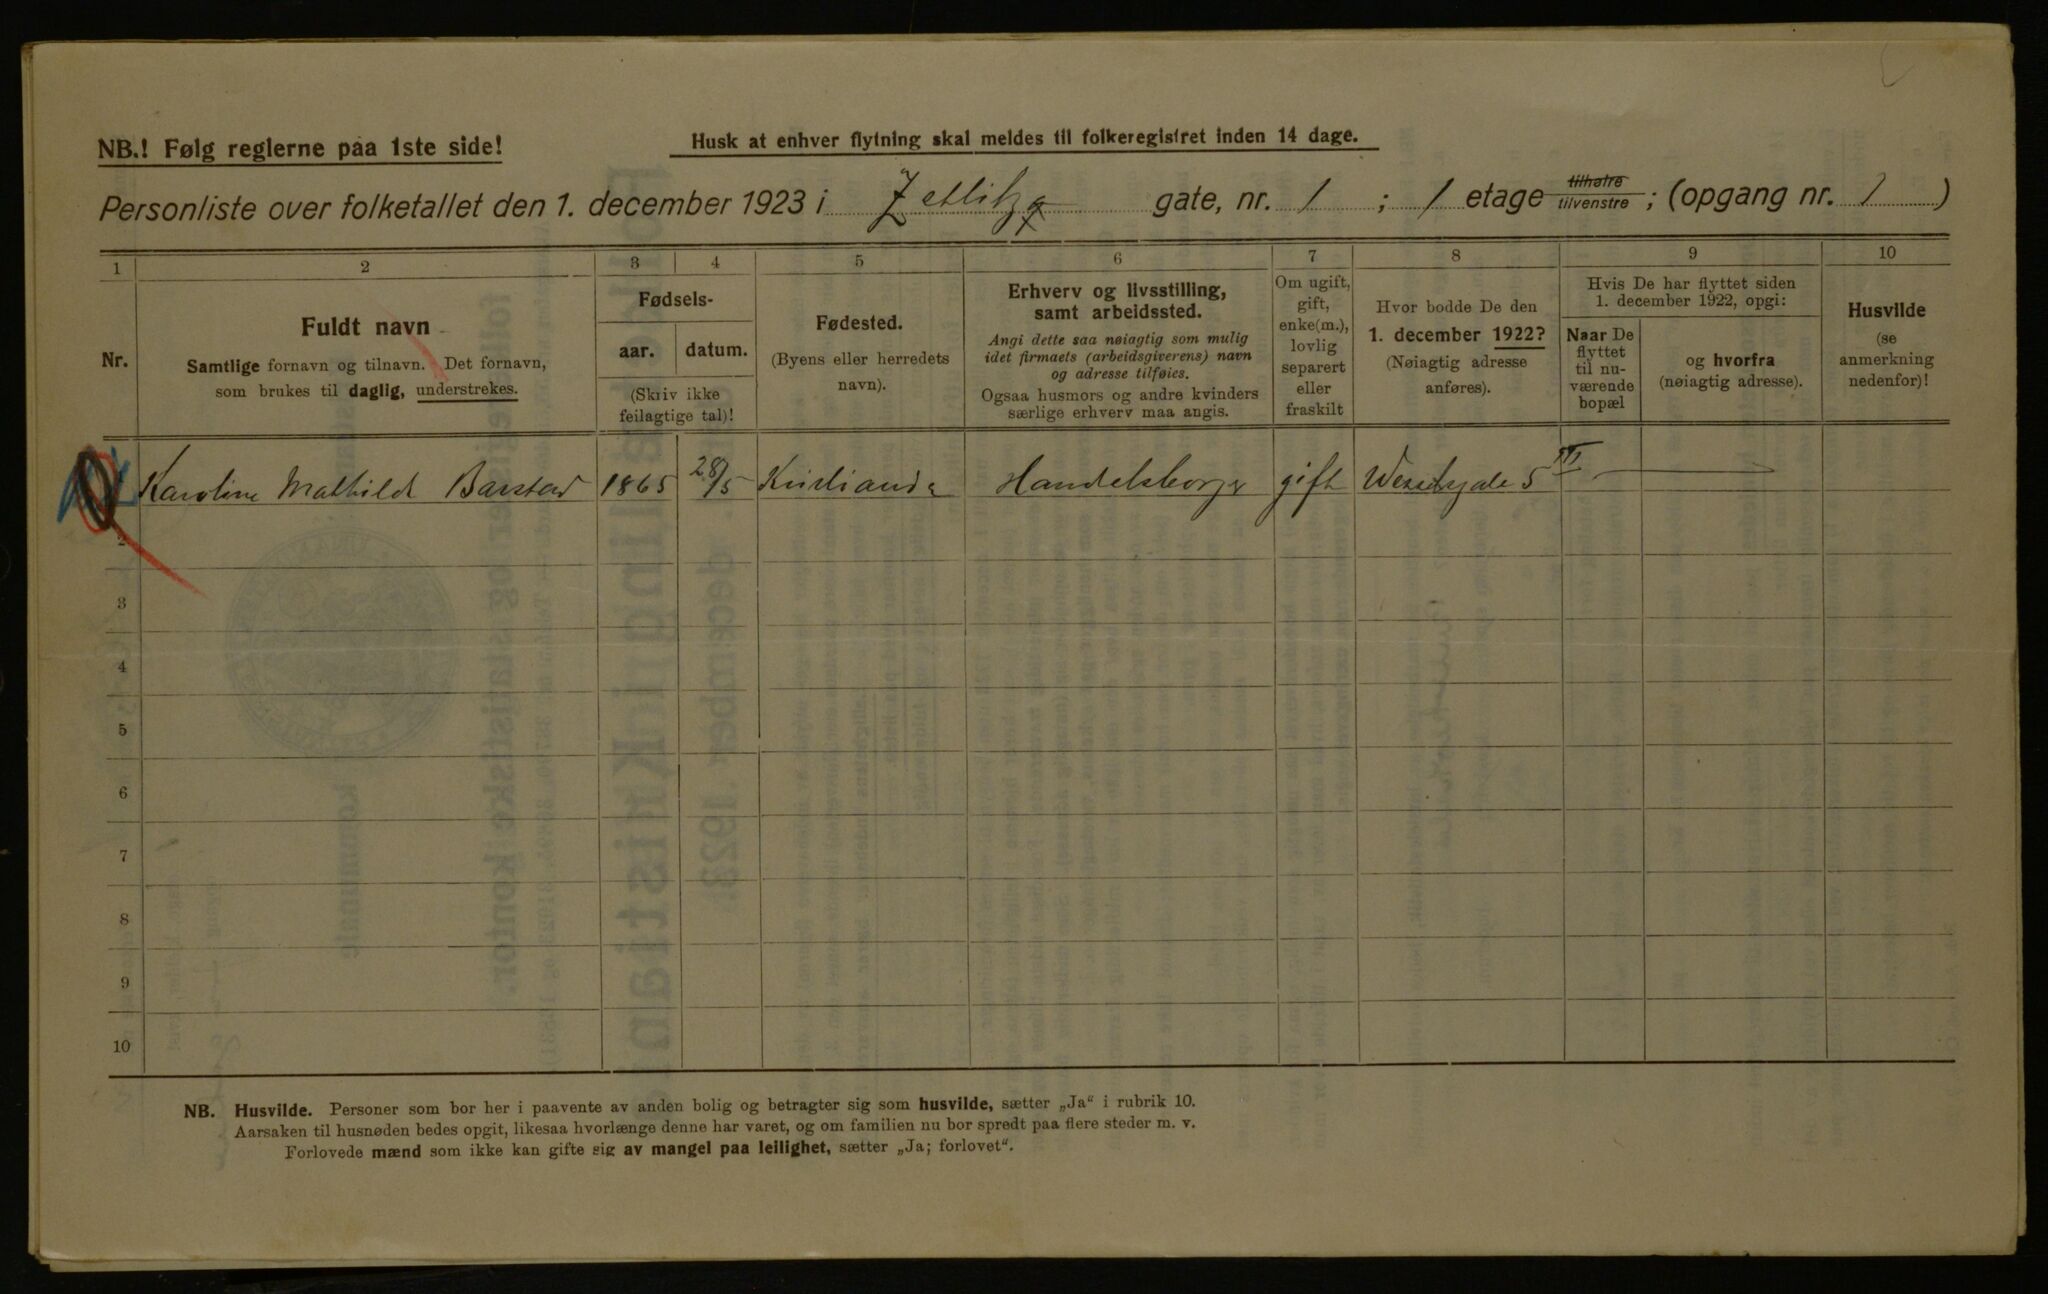 NB.! Følg reglerne paa 1ste side!
Husk at enhver flytning skal meldes til folkeregistret inden 14 dage.
Personliste over folketallet den 1. december 1923 i Zetlitz gate, nr. 1 ; 1 etage tilhøire tilvenstre ; (opgang nr. 1 )
1 2 3 4 5 6 7 8 9 10
Nr.
Fuldt navn
Samtlige fornavn og tilnavn. Det fornavn,
som brukes til daglig, understrekes.
Fødsels-
aar. datum.
(Skriv ikke
feilagtige tal)!
Fødested.
(Byens eller herredets
navn).
Erhverv og livsstilling,
samt arbeidssted.
Angi dette saa nøiagtig som mulig
idet firmaets (arbeidsgiverens) navn
og adresse tilføies.
Ogsaa husmors og andre kvinders
særlige erhverv maa angis.
Om ugift,
gift,
enke(m.),
lovlig
separert
eller
fraskilt
Hvor bodde De den
1. december 1922?
(Nøiagtig adresse
anføres).
Hvis De har flyttet siden
1. december 1922, opgi:
Naar De
flyttet
til nu-
værende
bopæl
og hvorfra
(nøiagtig adresse).
Husvilde
(se
anmerkning
nedenfor)!
Karoline Mathilde Barstad 1865 28/5 Kristiania gift 5 III
2
3
4
5
6
7
8
9
10
NB. Husvilde. Personer som bor her i paavente av anden bolig og betragter sig som husvilde, sætter „Ja“ i rubrik 10.
Aarsaken til husnøden bedes opgit, likesaa hvorlænge denne har varet, og om familien nu bor spredt paa flere steder m. v.
Forlovede mænd som ikke kan gifte sig av mangel paa leilighet, sætter „Ja; forlovet“.